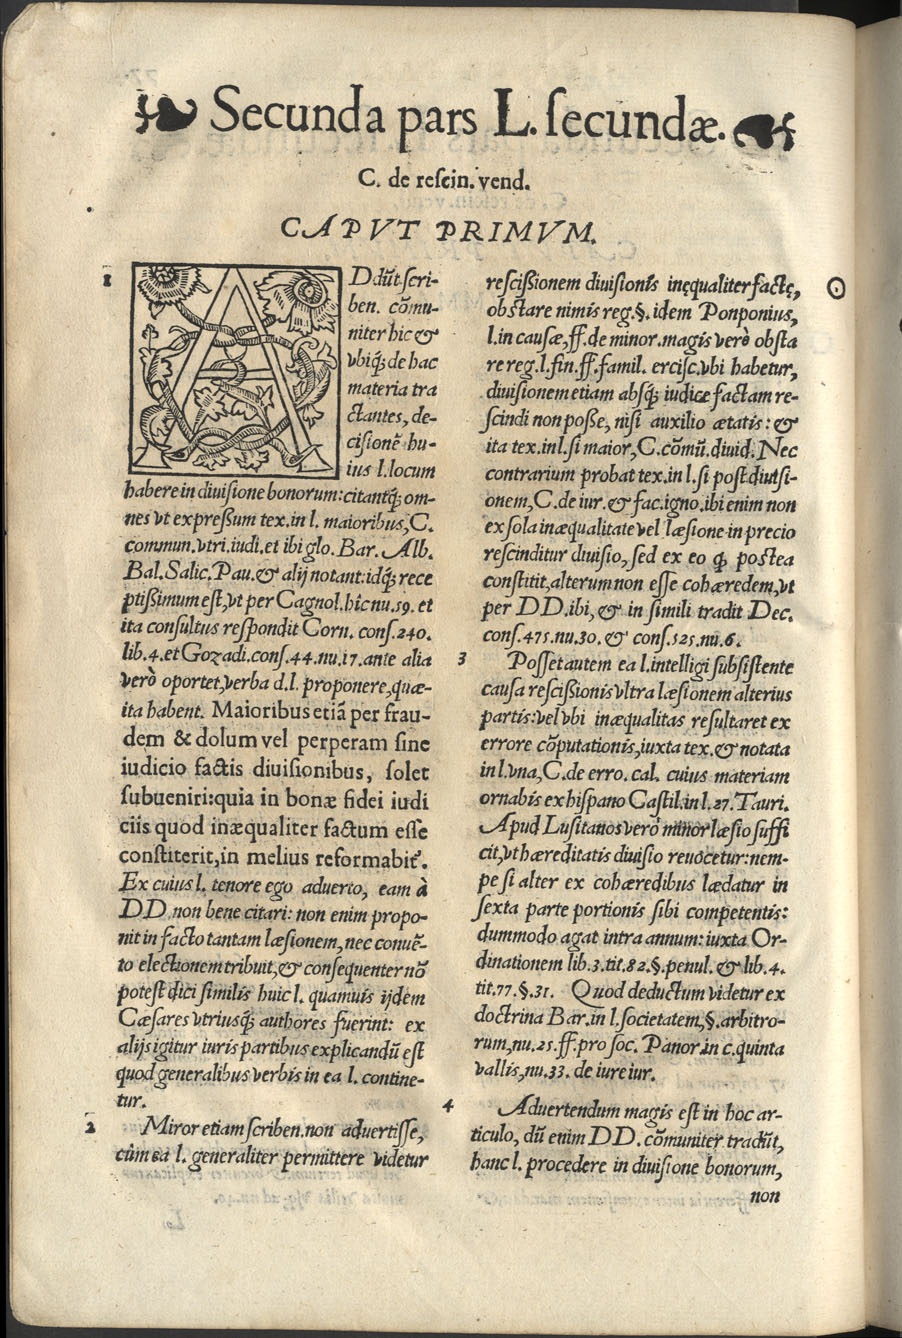 Secunda pars L. ſecundæ.
C. de reſcin. vend.
CAPVT PRIMVM.
1
ADdūt ſcri-
ben. cōmu-
niter hic &
vbiq; de hac
materia tra
ctantes, de-
ciſionē hu-
ius l. locum
habere in diuiſione bonorum: citantq; om-
nes vt expreßum tex. in l. maioribus, C.
commun. vtri. iudi. et ibi glo. Bar. Alb.
Bal. Salic. Pau. & alij notant: idq; rece
ptißimum eſt, vt per Cagnol. hîc nu. 59. et
ita conſultus reſpondit Corn. conſ. 240.
lib. 4. et Gozadi. conſ. 44. nu. 17. ante alia
verò oportet, verba d. l. proponere, quæ-
ita habent. Maioribus etiā per frau-
dem & dolum vel perperam ſine
iudicio factis diuiſionibus, ſolet
ſubueniri: quia in bonæ fidei iudi
ciis quod inæqualiter factum eſſe
conſtiterit, in melius reformabit'.
Ex cuius l. tenore ego aduerto, eam à
DD. non bene citari: non enim propo-
nit in facto tantam læſionem, nec conuē-
to electionem tribuit, & conſequenter nō
poteſt dici ſimilis huic l. quamuis ijdem
Cæſares vtriuſq; authores fuerint: ex
alijs igitur iuris partibus explicandū eſt
quod generalibus verbis in ea l. contine-
tur.
2 Miror etiam ſcriben. non aduertiſſe,
cùm ea l. generaliter permittere videtur
reſcißionem diuiſionis inęqualiter factę,
obſtare nimis reg. §. idem Ponponius,
l. in cauſæ, ff. de minor. magis verò obſta
re reg. l. fin. ff. famil. erciſc. vbi habetur,
diuiſionem etiam abſq; iudice factam re-
ſcindi non poße, niſi auxilio ætatis: &
ita tex. in l. ſi maior, C. cōmū. diuid. Nec
contrarium probat tex. in l. ſi poſt diuiſi-
onem, C. de iur. & fac. igno. ibi enim non
ex ſola inæqualitate vel læſione in precio
reſcinditur diuiſio, ſed ex eo q; poſtea
conſtitit, alterum non eſſe cohæredem, vt
per DD. ibi, & in ſimili tradit Dec.
conſ. 475. nu. 30. & conſ. 525. nu. 6.
3 Poſſet autem ea l. intelligi ſubſiſtente
cauſa reſcißionis vltra læſionem alterius
partis: vel vbi inæqualitas reſultaret ex
errore cōputationis, iuxta tex. & notata
in l. vna, C. de erro. cal. cuius materiam
ornabis ex hiſpano Caſtil. in l. 27. Tauri.
Apud Luſitanos verò minor læſio ſuffi
cit, vt hæreditatis diuiſio reuocetur: nem-
pe ſi alter ex cohæredibus lædatur in
ſexta parte portionis ſibi competentis:
dummodo agat intra annum: iuxta Or-
dinationem lib. 3. tit. 82. §. penul. & lib. 4.
tit. 77. §. 31. Quod deductum videtur ex
doctrina Bar. in l. ſocietatem, §. arbitro-
rum, nu. 25. ff. pro ſoc. Panor. in c. quinta
vallis, nu. 33. de iureiur.
4 Aduertendum magis eſt in hoc ar-
ticulo, dū enim DD. cōmuniter tradūt,
hanc l. procedere in diuiſione bonorum,
non